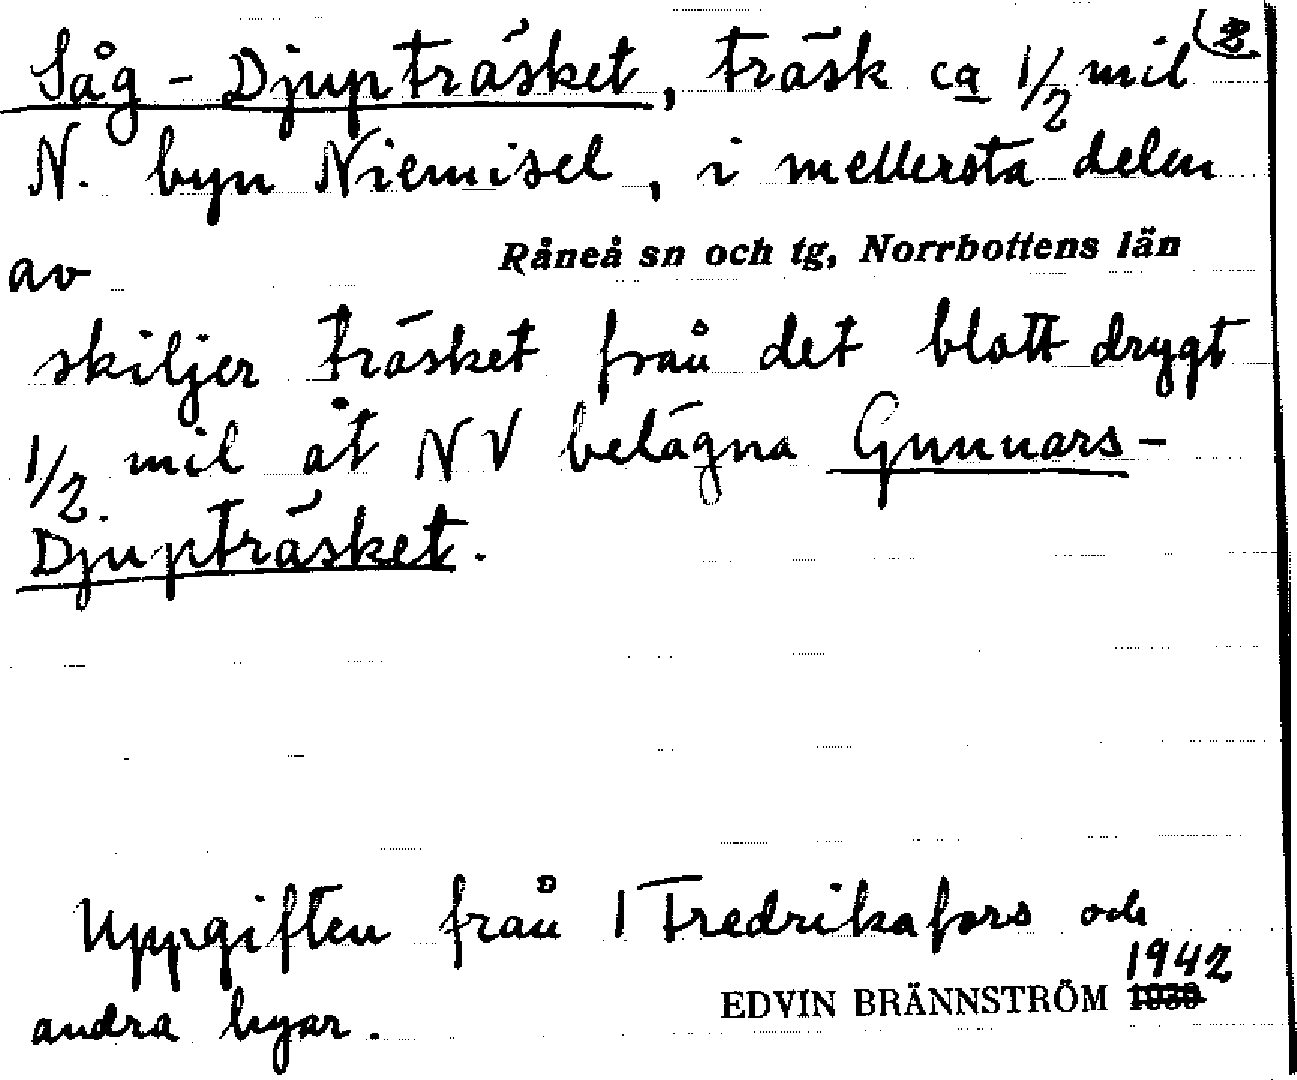 (2
Såg-Djupträsket, träsk ca 1/2 mil
N. byn Niemisel, i mellersta delen
av Råneå sn och tg, Norrbottens län
skiljer träsket från det blott drygt
1/2 mil åt NV belägna Gunnars-
Djupträsket.
Uppgiften från 1 Fredrikafors och
andra byar. EDVIN BRÄNNSTRÖM 1942